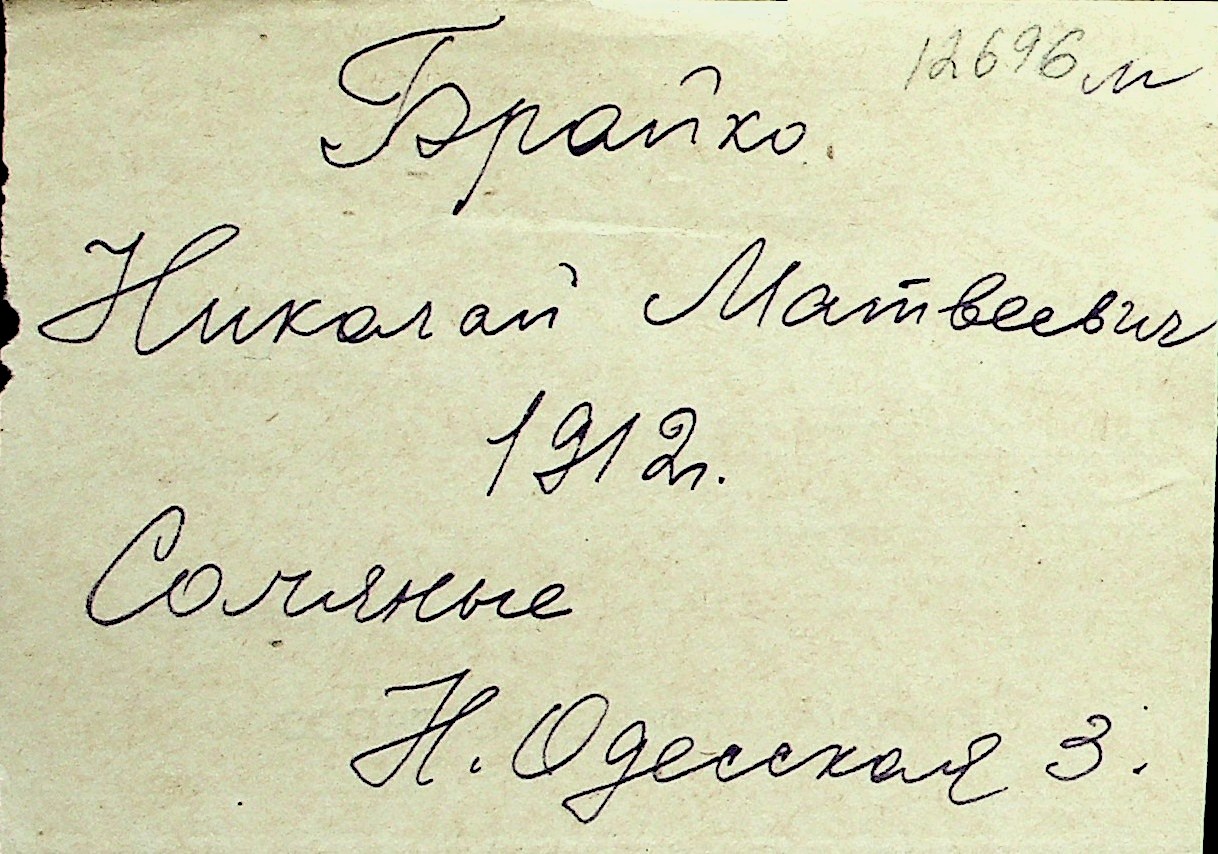 12696м
Брайко.
Николай Матвеевич
1912г.
Соляные
Н. Одесская 3.